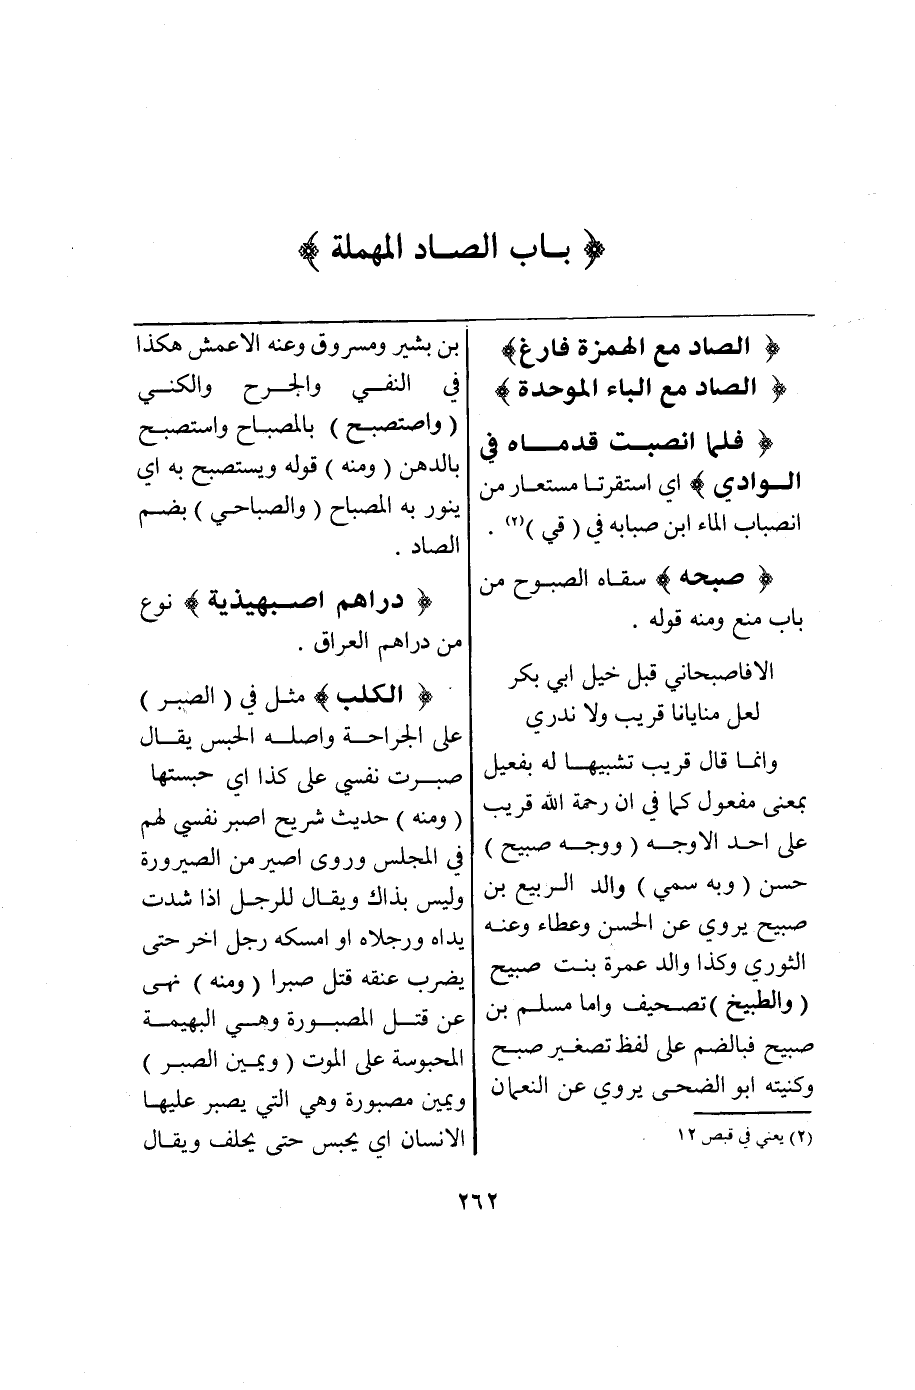 ﴿ باب الصاد المهملة ﴾
﴿ الصاد مع الهمزة فارغ﴾
﴿ الصاد مع الباء الموحدة ﴾
﴿ فلما انصبت قدماه في
الوادي ﴾ اي استقرتا مستعار من
انصباب الماء ابن صبابه في ( قي )(٢) .
﴿ صبحه ﴾ سقاه الصبوح من
باب منع ومنه قوله .
الافاصبحاني قبل خيل ابي بكر
لعل منايانا قريب ولا ندري
وانما قال قريب تشبيها له بفعيل
بمعنى مفعول كما في ان رحمة الله قريب
على احد الاوجه ( ووجه صبيح )
حسن ( وبه سمي ) والد الربيع بن
صبيح يروي عن الحسن وعطاء وعنه
الثوري وكذا والد عمرة بنت صبيح
( والطبيخ )تصحيف واما مسلم بن
صبيح فبالضم على لفظ تصغير صبح
وكنيته ابو الضحى يروي عن النعمان
(٢) يعني في قبص ١٢
بن بشير ومسروق وعنه الاعمش هكذا
في النفي والجرح والكني
( واصتصبح ) بالمصباح واستصبح
بالدهن ( ومنه ) قوله ويستصبح به اي
ينور به المصباح ( والصباحي ) بضم
الصاد .
﴿ دراهم اصبهيذية ﴾ نوع
من دراهم العراق .
﴿ الكلب ﴾ مثل في ( الصبر )
على الجراحة واصله الحبس يقال
صبرت نفسي على كذا اي حبستها
( ومنه ) حديث شريح اصبر نفسي لهم
في المجلس وروى اصير من الصيرورة
وليس بذاك ويقال للرجل اذا شدت
يداه ورجلاه او امسكه رجل اخر حتى
يضرب عنقه قتل صبرا ( ومنه ) نهى
عن قتل المصبورة وهي البهيمة
المحبوسة على الموت ( ويمين الصبر )
ويمين مصبورة وهي التي يصبر عليها
الانسان اي يحبس حتى يحلف ويقال
٢٦٢